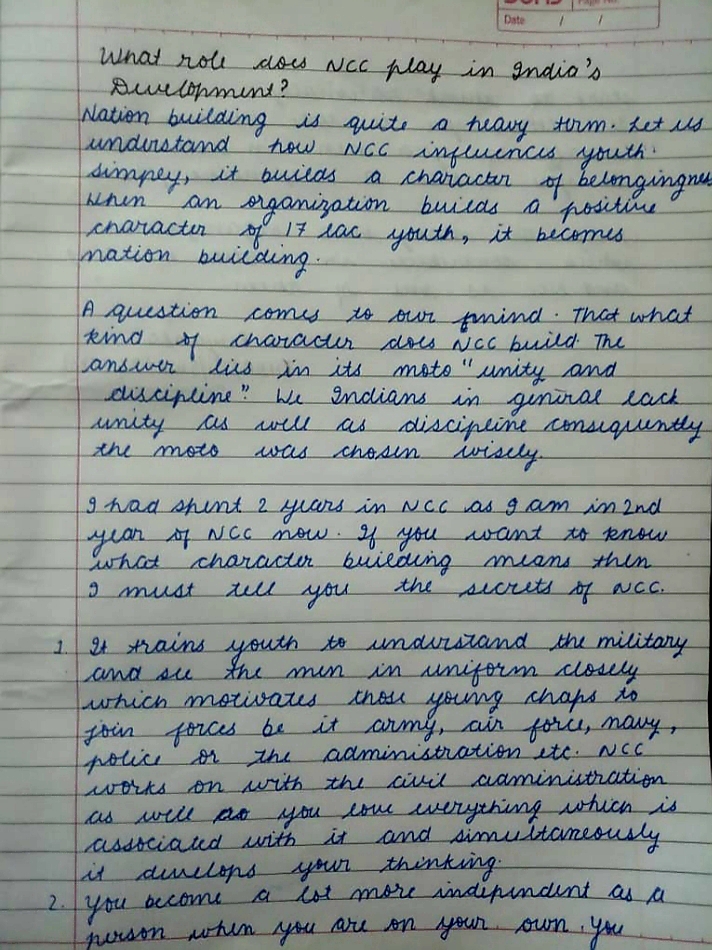 Date / /
What role does NCC play in India's
Development?
Nation building is quite a heavy term. Let us
understand how NCC influences youth.
simpley, it builds a character of belongingnes
when an organization builds a positive
character of 17 lac youth, it becomes
nation building.
A question comes to our mind. That what
kind of character does NCC build. The
answer lies in its moto "unity and
discipline". We Indians in general lack
unity as well as discipline consequently
the moto was chosen wisely.
I had spent 2 years in NCC as I am in 2nd
year of NCC now. If you want to know
what character building means then
I must tell you the secrets of NCC.
1. It trains youth to understand the military
and see the men in uniform closely
which motivates those young chaps to
join forces be it army, air force, navy,
police or the administration etc. NCC
works on with the civil administration
as well as you love everything which is
associated with it and simultaneously
it develops your thinking.
2. You become a lot more independent as a
person when you are on your own. You